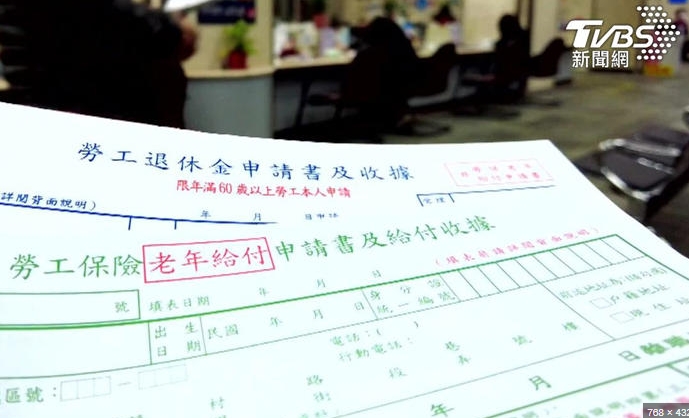 TVBS
新聞網
勞工退休金申請書及收據
限年滿60歲以上勞工本人申請
詳閱背面說明）
年 月 日
勞工保險老年給付申請書及給付收據
（填表前請詳閱背面說明）
號 填表日期 年 月 日
身分證
統一編號
出生
日期
民國 年 月 日
電話：( )
行動電話：
戶籍地
現住
區號：
村 路 段 巷 弄 號 樓
街
年 月 日
768 × 432